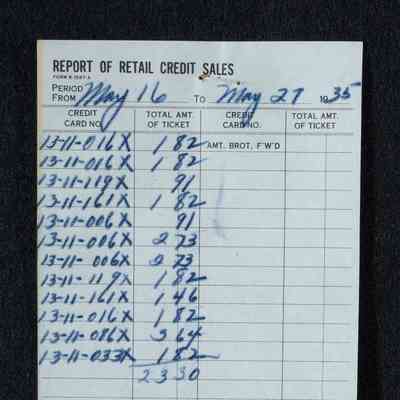 REPORT OF RETAIL CREDIT SALES
FORM R-1087-A
PERIOD FROM May 16 TO May 27 1935
CREDIT CARD NO. TOTAL AMT. OF TICKET CREDIT CARD NO. TOTAL AMT. OF TICKET
13-11-016X 1 82 AMT. BROT. F'W'D
13-11-016X 1 82
13-11-119X 91
13-11-161X 1 82
13-11-006X 91
13-11-006X 2 73
13-11-006X 2 73
13-11-119X 1 82
13-11-161X 1 46
13-11-016X 1 82
13-11-086X 3 64
13-11-033X 1 82
23 30